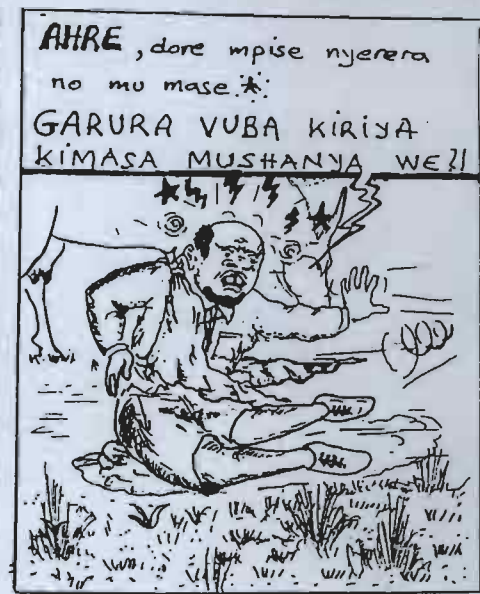 AHRE, dore mpise nyerera
no mu mase.
GARURA VUBA KIRIYA
KIMASA MUSHANYA WE?!